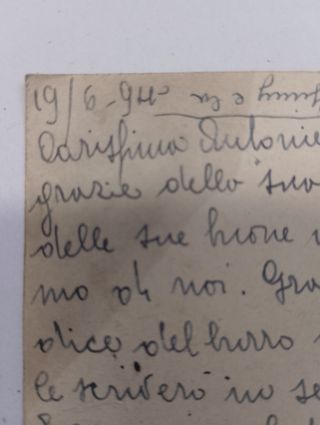 19/6-944
Carissimo Antonie
grazie dello suo
delle sue buone
mo di noi. Gra
dice del burro
le scriverò in se